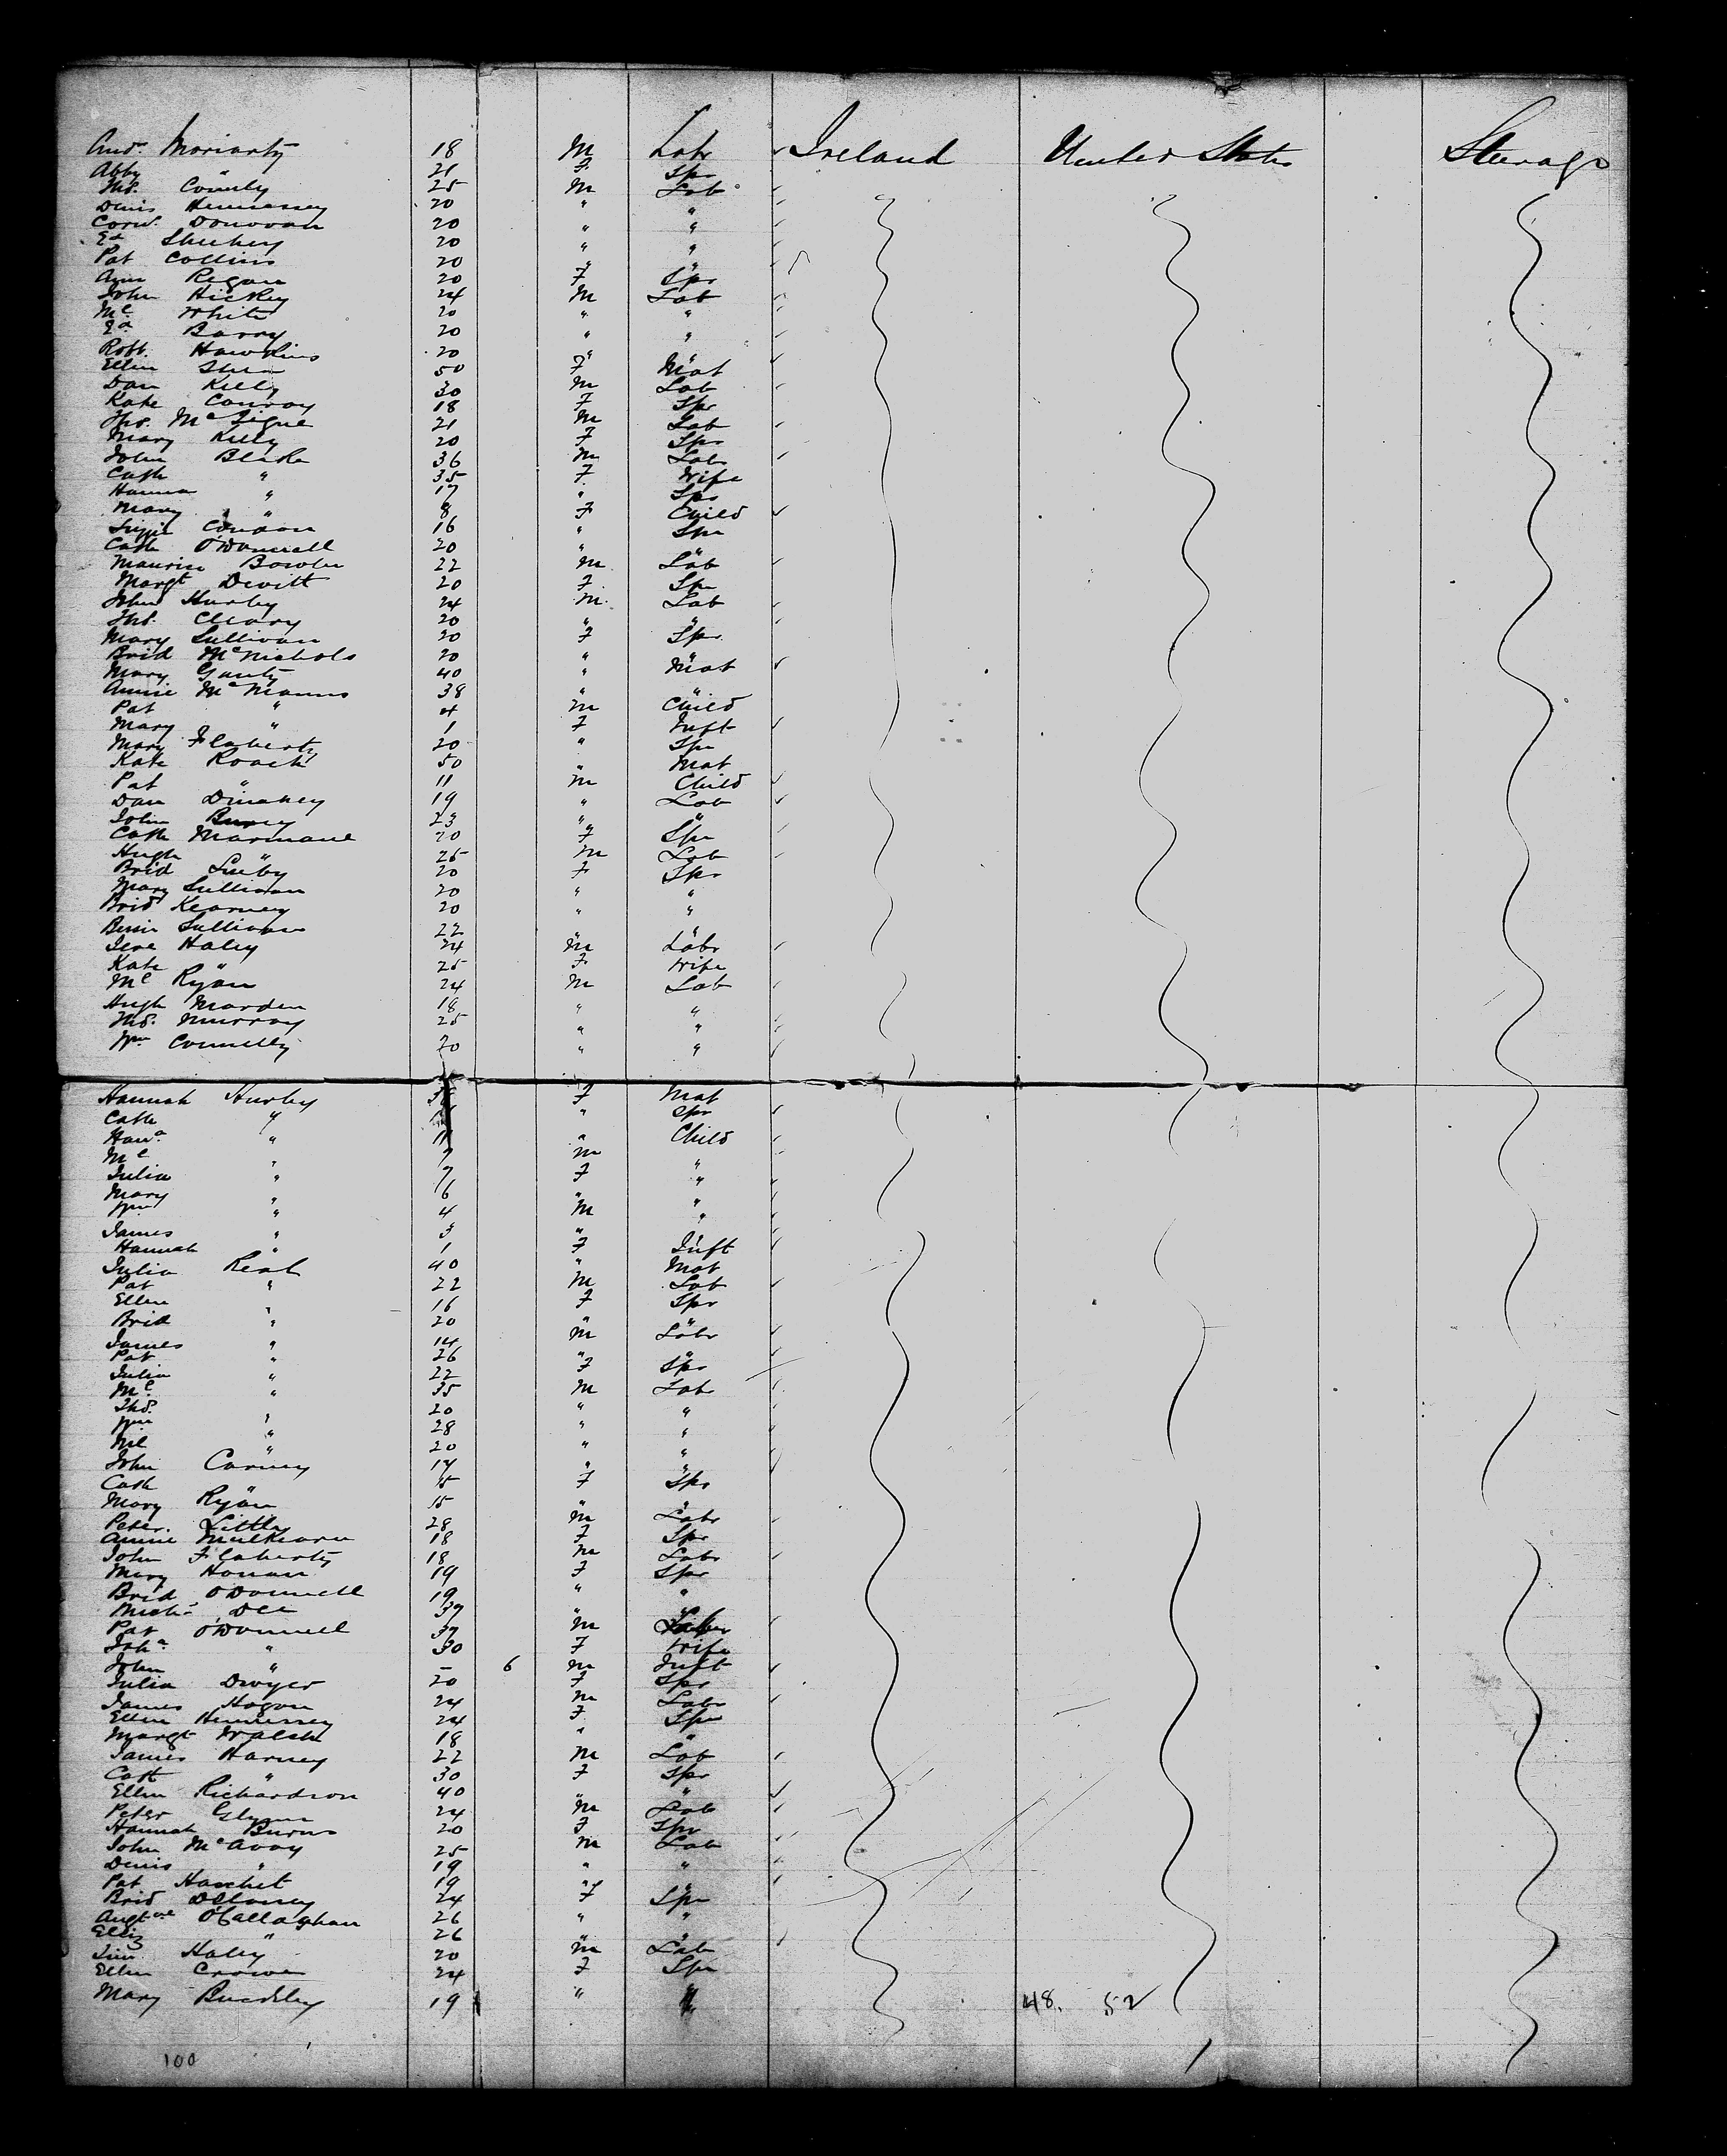 And. Moriarty 18 M Labr Ireland United States Steerage
Abby " 21 F Spr
Ths. County 25 M Lab
Denis Hennessey 20 " "
Corn. Donovan 20 " "
Ed Sheehey 20 " "
Pat Collins 20 " "
Ann Regan 20 F Spr
John Hickey 24 M Lab
Ml White 20 " "
Ed Barry 20 " "
Robt. Hawkins 20 " "
Ellen Shea 50 F Mat
Dan Kelly 30 M Lab
Kate Conroy 18 F Spr
Ths. McTigue 21 M Lab
Mary Kelly 20 F Spr
John Blake 36 M Labr
Cath " 35 F Wife
Hanna " 17 " Spr
Mary " 8 F Child
Lizzie Condon 16 " Spr
Cath O'Donnell 20 " "
Maurice Bowler 22 M Lab
Margt Devitt 20 F Spr
John Hurley 24 M Lab
Ths. Cleary 20 " "
Mary Sullivan 20 F Spr
Brid McNichols 20 " "
Mary 40 " Mat
Annie McManus 38 " "
Pat " 4 M Child
Mary " 1 F Inft
Mary Flaherty 20 " Spr
Kate Roach 50 " Mat
Pat " 11 M Child
Dan 19 " Lab
John 23 " "
Cath Marmane 20 F Spr
Hugh " 25 M Lab
Brid 20 F Spr
Mary Sullivan 20 " "
Brid Kearney 20 " "
Sullivan 22 " "
Jere Haley 24 M Labr
Kate " 25 F Wife
Ml Ryan 24 M Lab
Hugh Marden 18 " "
Ths. Murray 25 " "
Wm Connelly 20 " "
Hannah Hurley F Mat
Cath " " Spr
Hana " 11 " Child
Ml " 7 M "
Julia " 7 F "
Mary " 6 " "
Wm " 4 M "
James " 3 " "
Hannah " 1 F Inft
Julia Reah 40 " Mat
Pat " 22 M Lab
Ellen " 16 F Spr
Brid " 20 " "
James " 14 M Labr
Pat " 26 " "
Julia " 22 F Spr
Ml " 35 M Labr
Ths. " 20 " "
Wm " 28 " "
" 20 " "
John Carney 17 " "
Cath " 15 F Spr
Mary Ryan 15 " "
Peter Little 28 M Labr
Annie Mulkearn 18 F Spr
John Flaherty 18 M Labr
Mary Honan 19 F Spr
Brid O'Donnell 19 " "
Dee 37 " "
Pat O'Donnell 37 M Labr
Joha " 30 F Wife
John " - 6 M Inft
Julia Dwyer 20 F Spr
James Hogan 24 M Labr
Ellen Hennessey 24 F Spr
Margt Walsh 18 " "
James Harney 22 M Lab
Cath " 30 F Spr
Ellen Richardson 40 " "
Peter Glynn 24 M Lab
Hannah Burns 20 F Spr
John McAvoy 25 M Lab
Denis " 19 " "
Pat Hatchet 19 " "
Brid Delaney 24 F Spr
O'Callaghan 26 " "
Eliz " 26 " "
Haley 20 M Lab
Ellen Crowe 24 F Spr
Mary Buckley 19 " " 48. 52
100